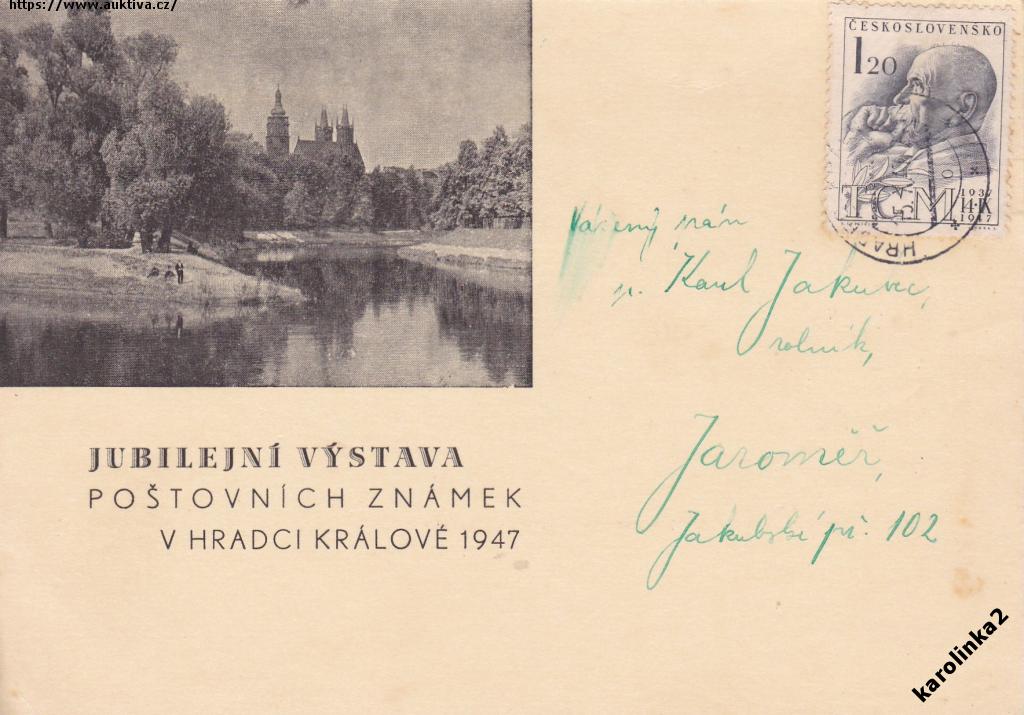 https://www.auktiva.cz/
ČESKOSLOVENSKO
1 20
TGM
1937
14·IX
1947
HRAD
Vážený pán
p. Karel Jakubec,
rolník,
Jaroměř,
Jakubské př. 102
JUBILEJNÍ VÝSTAVA
POŠTOVNÍCH ZNÁMEK
V HRADCI KRÁLOVÉ 1947
karolinka2